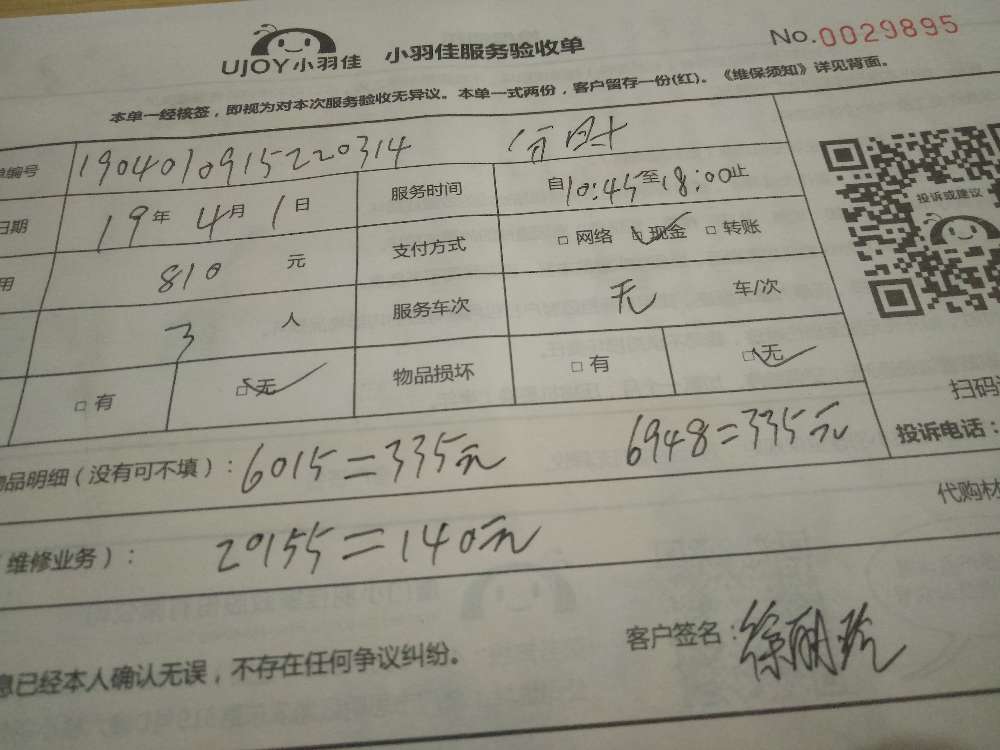 UJOY小羽佳 小羽佳服务验收单 No.0029895
本单一经核签，即视为对本次服务验收无异议。本单一式两份，客户留存一份(红)。《维保须知》详见背面。
单编号 1904010915220314
日期 19年 4月 1日 服务时间 自10:45至18:00止
用 810 元 支付方式 □ 网络 □ 现金 □ 转账
3 人 服务车次 无 车/次
□ 有 □ 无 物品损坏 □ 有 □ 无
投诉或建议
扫码
物品明细（没有可不填）：6015=335元 6948=335元 投诉电话：
（维修业务）：20155=140元 代购材
息已经本人确认无误，不存在任何争议纠纷。 客户签名：徐丽玲